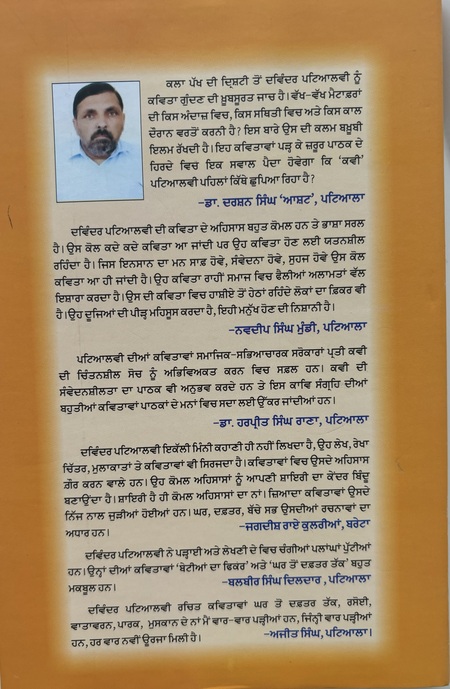 ਕਲਾ ਪੱਖ ਦੀ ਦ੍ਰਿਸ਼ਟੀ ਤੋਂ ਦਵਿੰਦਰ ਪਟਿਆਲਵੀ ਨੂੰ
ਕਵਿਤਾ ਗੁੰਦਣ ਦੀ ਖ਼ੂਬਸੂਰਤ ਜਾਚ ਹੈ। ਵੱਖ-ਵੱਖ ਮੈਟਾਫ਼ਰਾਂ
ਦੀ ਕਿਸ ਅੰਦਾਜ਼ ਵਿਚ, ਕਿਸ ਸਥਿਤੀ ਵਿਚ ਅਤੇ ਕਿਸ ਕਾਲ
ਦੌਰਾਨ ਵਰਤੋਂ ਕਰਨੀ ਹੈ? ਇਸ ਬਾਰੇ ਉਸ ਦੀ ਕਲਮ ਬਖ਼ੂਬੀ
ਇਲਮ ਰੱਖਦੀ ਹੈ। ਇਹ ਕਵਿਤਾਵਾਂ ਪੜ੍ਹ ਕੇ ਜ਼ਰੂਰ ਪਾਠਕ ਦੇ
ਹਿਰਦੇ ਵਿਚ ਇਕ ਸਵਾਲ ਪੈਦਾ ਹੋਵੇਗਾ ਕਿ ‘ਕਵੀ’
ਪਟਿਆਲਵੀ ਪਹਿਲਾਂ ਕਿੱਥੇ ਛੁਪਿਆ ਰਿਹਾ ਹੈ?
-ਡਾ. ਦਰਸ਼ਨ ਸਿੰਘ ‘ਆਸ਼ਟ’, ਪਟਿਆਲਾ
ਦਵਿੰਦਰ ਪਟਿਆਲਵੀ ਦੀ ਕਵਿਤਾ ਦੇ ਅਹਿਸਾਸ ਬਹੁਤ ਕੋਮਲ ਹਨ ਤੇ ਭਾਸ਼ਾ ਸਰਲ
ਹੈ। ਉਸ ਕੋਲ ਕਦੇ ਕਦੇ ਕਵਿਤਾ ਆ ਜਾਂਦੀ ਪਰ ਉਹ ਕਵਿਤਾ ਹੋਣ ਲਈ ਯਤਨਸ਼ੀਲ
ਰਹਿੰਦਾ ਹੈ। ਜਿਸ ਇਨਸਾਨ ਦਾ ਮਨ ਸਾਫ਼ ਹੋਵੇ, ਸੰਵੇਦਨਾ ਹੋਵੇ, ਸੁਹਜ ਹੋਵੇ ਉਸ ਕੋਲ
ਕਵਿਤਾ ਆ ਹੀ ਜਾਂਦੀ ਹੈ। ਉਹ ਕਵਿਤਾ ਰਾਹੀਂ ਸਮਾਜ ਵਿਚ ਫੈਲੀਆਂ ਅਲਾਮਤਾਂ ਵੱਲ
ਇਸ਼ਾਰਾ ਕਰਦਾ ਹੈ। ਉਸ ਦੀ ਕਵਿਤਾ ਵਿਚ ਹਾਸ਼ੀਏ ਤੋਂ ਹੇਠਾਂ ਰਹਿੰਦੇ ਲੋਕਾਂ ਦਾ ਫ਼ਿਕਰ ਵੀ
ਹੈ। ਉਹ ਦੂਜਿਆਂ ਦੀ ਪੀੜ੍ਹ ਮਹਿਸੂਸ ਕਰਦਾ ਹੈ, ਇਹੀ ਮਨੁੱਖ ਹੋਣ ਦੀ ਨਿਸ਼ਾਨੀ ਹੈ।
-ਨਵਦੀਪ ਸਿੰਘ ਮੁੰਡੀ, ਪਟਿਆਲਾ
ਪਟਿਆਲਵੀ ਦੀਆਂ ਕਵਿਤਾਵਾਂ ਸਮਾਜਿਕ-ਸਭਿਆਚਾਰਕ ਸਰੋਕਾਰਾਂ ਪ੍ਰਤੀ ਕਵੀ
ਦੀ ਚਿੰਤਨਸ਼ੀਲ ਸੋਚ ਨੂੰ ਅਭਿਵਿਅਕਤ ਕਰਨ ਵਿਚ ਸਫ਼ਲ ਹਨ। ਕਵੀ ਦੀ
ਸੰਵੇਦਨਸ਼ੀਲਤਾ ਦਾ ਪਾਠਕ ਵੀ ਅਨੁਭਵ ਕਰਦੇ ਹਨ ਤੇ ਇਸ ਕਾਵਿ ਸੰਗ੍ਰਹਿ ਦੀਆਂ
ਬਹੁਤੀਆਂ ਕਵਿਤਾਵਾਂ ਪਾਠਕਾਂ ਦੇ ਮਨਾਂ ਵਿਚ ਸਦਾ ਲਈ ਉੱਕਰ ਜਾਂਦੀਆਂ ਹਨ।
-ਡਾ. ਹਰਪ੍ਰੀਤ ਸਿੰਘ ਰਾਣਾ, ਪਟਿਆਲਾ
ਦਵਿੰਦਰ ਪਟਿਆਲਵੀ ਇਕੱਲੀ ਮਿੰਨੀ ਕਹਾਣੀ ਹੀ ਨਹੀਂ ਲਿਖਦਾ ਹੈ, ਉਹ ਲੇਖ, ਰੇਖਾ
ਚਿੱਤਰ, ਮੁਲਾਕਾਤਾਂ ਤੇ ਕਵਿਤਾਵਾਂ ਵੀ ਸਿਰਜਦਾ ਹੈ। ਕਵਿਤਾਵਾਂ ਵਿਚ ਉਸਦੇ ਅਹਿਸਾਸ
ਗ਼ੌਰ ਕਰਨ ਵਾਲੇ ਹਨ। ਉਹ ਕੋਮਲ ਅਹਿਸਾਸਾਂ ਨੂੰ ਆਪਣੀ ਸ਼ਾਇਰੀ ਦਾ ਕੇਂਦਰ ਬਿੰਦੂ
ਬਣਾਉਂਦਾ ਹੈ। ਸ਼ਾਇਰੀ ਹੈ ਹੀ ਕੋਮਲ ਅਹਿਸਾਸਾਂ ਦਾ ਨਾਂ। ਜ਼ਿਆਦਾ ਕਵਿਤਾਵਾਂ ਉਸਦੇ
ਨਿੱਜ ਨਾਲ ਜੁੜੀਆਂ ਹੋਈਆਂ ਹਨ। ਘਰ, ਦਫ਼ਤਰ, ਬੱਚੇ ਸਭ ਉਸਦੀਆਂ ਰਚਨਾਵਾਂ ਦਾ
ਅਧਾਰ ਹਨ। -ਜਗਦੀਸ਼ ਰਾਏ ਕੁਲਰੀਆਂ, ਬਰੇਟਾ
ਦਵਿੰਦਰ ਪਟਿਆਲਵੀ ਨੇ ਪੜ੍ਹਾਈ ਅਤੇ ਲੇਖਣੀ ਦੇ ਵਿਚ ਚੰਗੀਆਂ ਪਲਾਂਘਾਂ ਪੁੱਟੀਆਂ
ਹਨ। ਉਨ੍ਹਾਂ ਦੀਆਂ ਕਵਿਤਾਵਾਂ ‘ਬੇਟੀਆਂ ਦਾ ਫਿਕਰ’ ਅਤੇ ‘ਘਰ ਤੋਂ ਦਫਤਰ ਤੱਕ’ ਬਹੁਤ
ਮਕਬੂਲ ਹਨ। -ਬਲਬੀਰ ਸਿੰਘ ਦਿਲਦਾਰ, ਪਟਿਆਲਾ
ਦਵਿੰਦਰ ਪਟਿਆਲਵੀ ਰਚਿਤ ਕਵਿਤਾਵਾਂ ਘਰ ਤੋਂ ਦਫ਼ਤਰ ਤੱਕ, ਰਸੋਈ,
ਵਾਤਾਵਰਨ, ਪਾਰਕ, ਮੁਸਕਾਨ ਦੇ ਨਾਂ ਮੈਂ ਵਾਰ-ਵਾਰ ਪੜ੍ਹੀਆਂ ਹਨ, ਜਿੰਨ੍ਹੀ ਵਾਰ ਪੜ੍ਹੀਆਂ
ਹਨ, ਹਰ ਵਾਰ ਨਵੀਂ ਊਰਜਾ ਮਿਲੀ ਹੈ। -ਅਜੀਤ ਸਿੰਘ, ਪਟਿਆਲਾ।